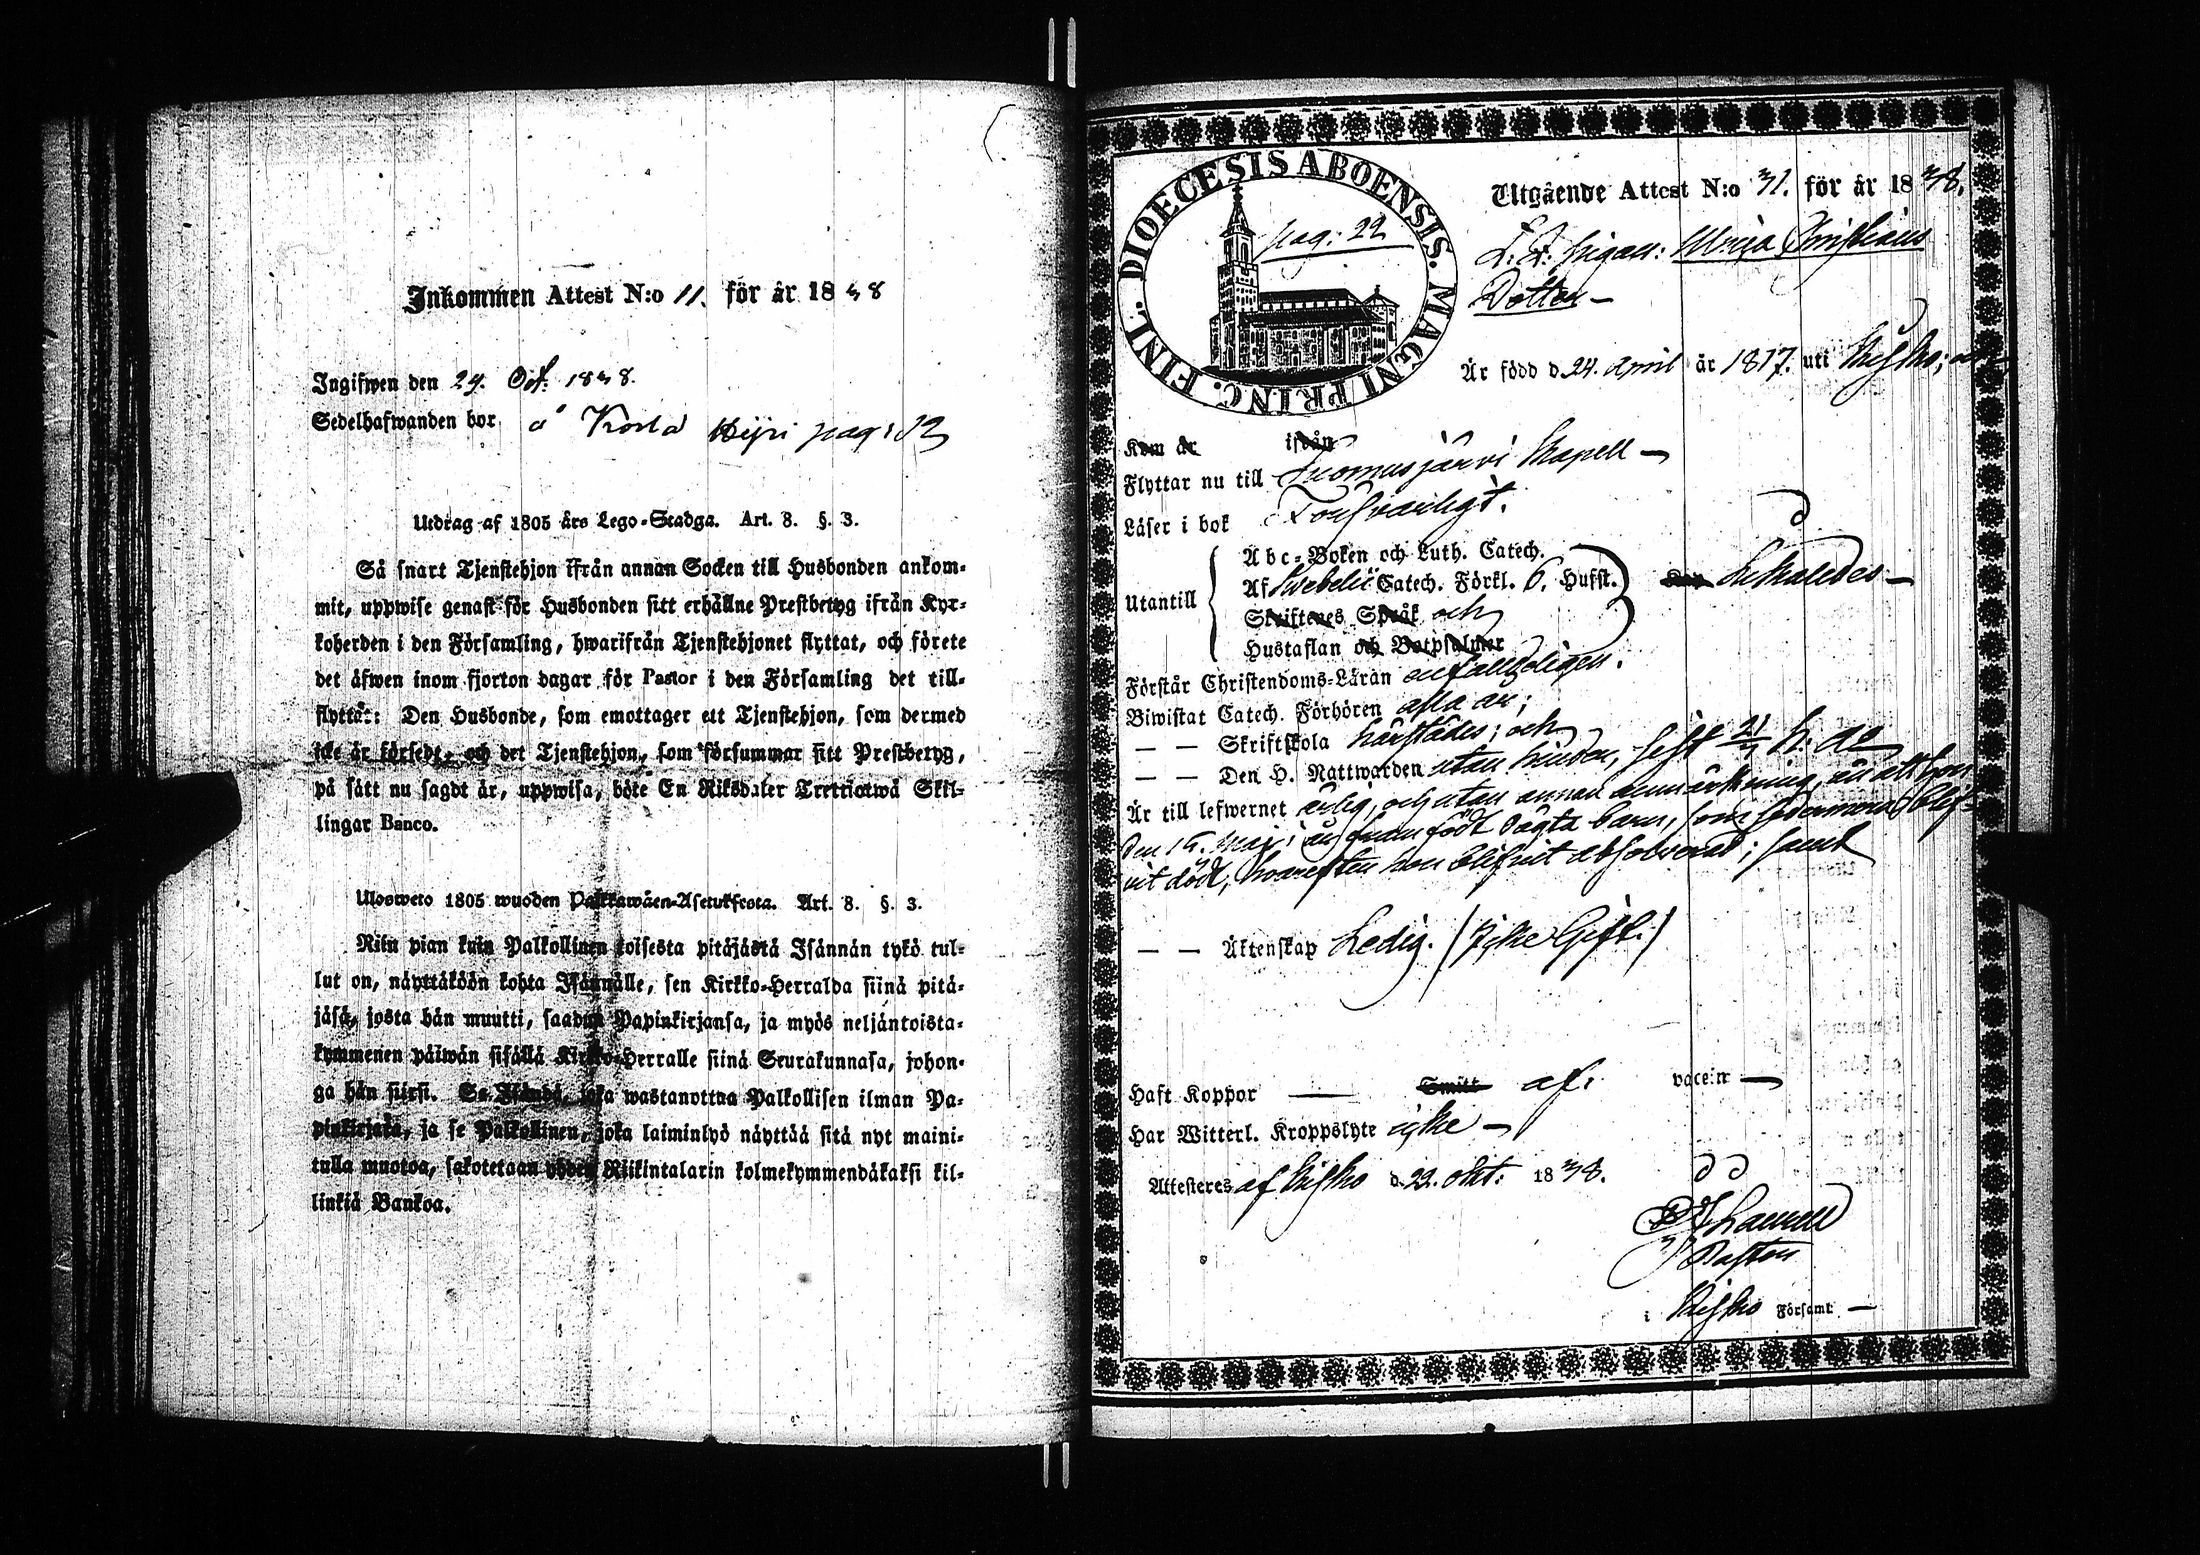 Inkommen Attest N:o 11. för år 1838
Ingifwen den 24. Oct. 1838.
Sedelhafwanden bor å Korla pag: 
Utdrag af 1805 års Lego-Stadga. Art. 8. §. 3.
Så snart Tjenstehjon ifrån annan Socken till Husbonden ankom-
mit, uppwise genast för Husbonden sitt erhållne Prestbetyg ifrån Kyr-
koherden i den Församling, hwarifrån Tjenstehjonet flyttat, och förete
det äfwen inom fjorton dagar för Pastor i den Församling det till-
flyttat: Den Husbonde, som emottager ett Tjenstehjon, som dermed
icke är försedt, och det Tjenstehjon, som försummar sitt Prestbetyg,
på sätt nu sagdt är, uppwisa, böte En Riksdaler Trettiotwå Skil-
lingar Banco.
Ulosweto 1805 wuoden Palkkawäen-Asetuksesta. Art. 8. §. 3.
Niin pian kuin Palkollinen toisesta pitäjästä Isännän tykö tul-
lut on, näyttäköön kohta Isännälle, sen Kirkko-Herralda siinä pitä-
jäsä, josta hän muutti, saadun Papinkirjansa, ja myös neljäntoista-
kymmenen päiwän sisällä Kirkko-Herralle siinä Seurakunnasa, johon-
ga hän siirsi. Se Isändä, joka wastanottaa Palkollisen ilman Pa-
pinkirjata, ja se Palkollinen, joka laiminlyö näyttää sitä nyt maini-
tulla muotoa, sakotetaan yhden Riikintalarin kolmekymmendäkaksi kil-
linkiä Bankoa.
DIOECESIS ABOENSIS. MAGNI PRINC. FINL.
pag: 22
Utgående Attest N:o 31. för år 1838.
pigan: Maja Christians
Dotter
Är född d. 24. April år 1817. uti Kisko;
Kom år ifrån
Flyttar nu till Suomusjärvi Kapell
Läser i bok Försvarligt.
Utantill
Abc-Boken och Luth. Catech.
Af Swebelii Catech. Förkl. 6. Hufst.
Skriftenes Språk och
Hustaflan och Botpsalmer
Förstår Christendoms-Läran enfaldeligen.
Biwistat Catech. Förhören alla år;
— — Skriftskola härstädes; och
— — Den H. Nattwarden utan hinder, sist 21/7 h. a.
Är till lefwernet ärlig, och utan annan anmärkning, än att hon
den 15. Maj: framfödt oägta barn, som sedermera blif-
vit dödt, hvarefter hon blifvit absolverad; samt
— — Äktenskap Ledig. (Icke Gift.)
Haft Koppor — Smitt af: vaccin
Har Witterl. Kroppslyte icke
Attesteres af Kisko d. 22. okt: 1838.
Pastor
i Kisko Församl